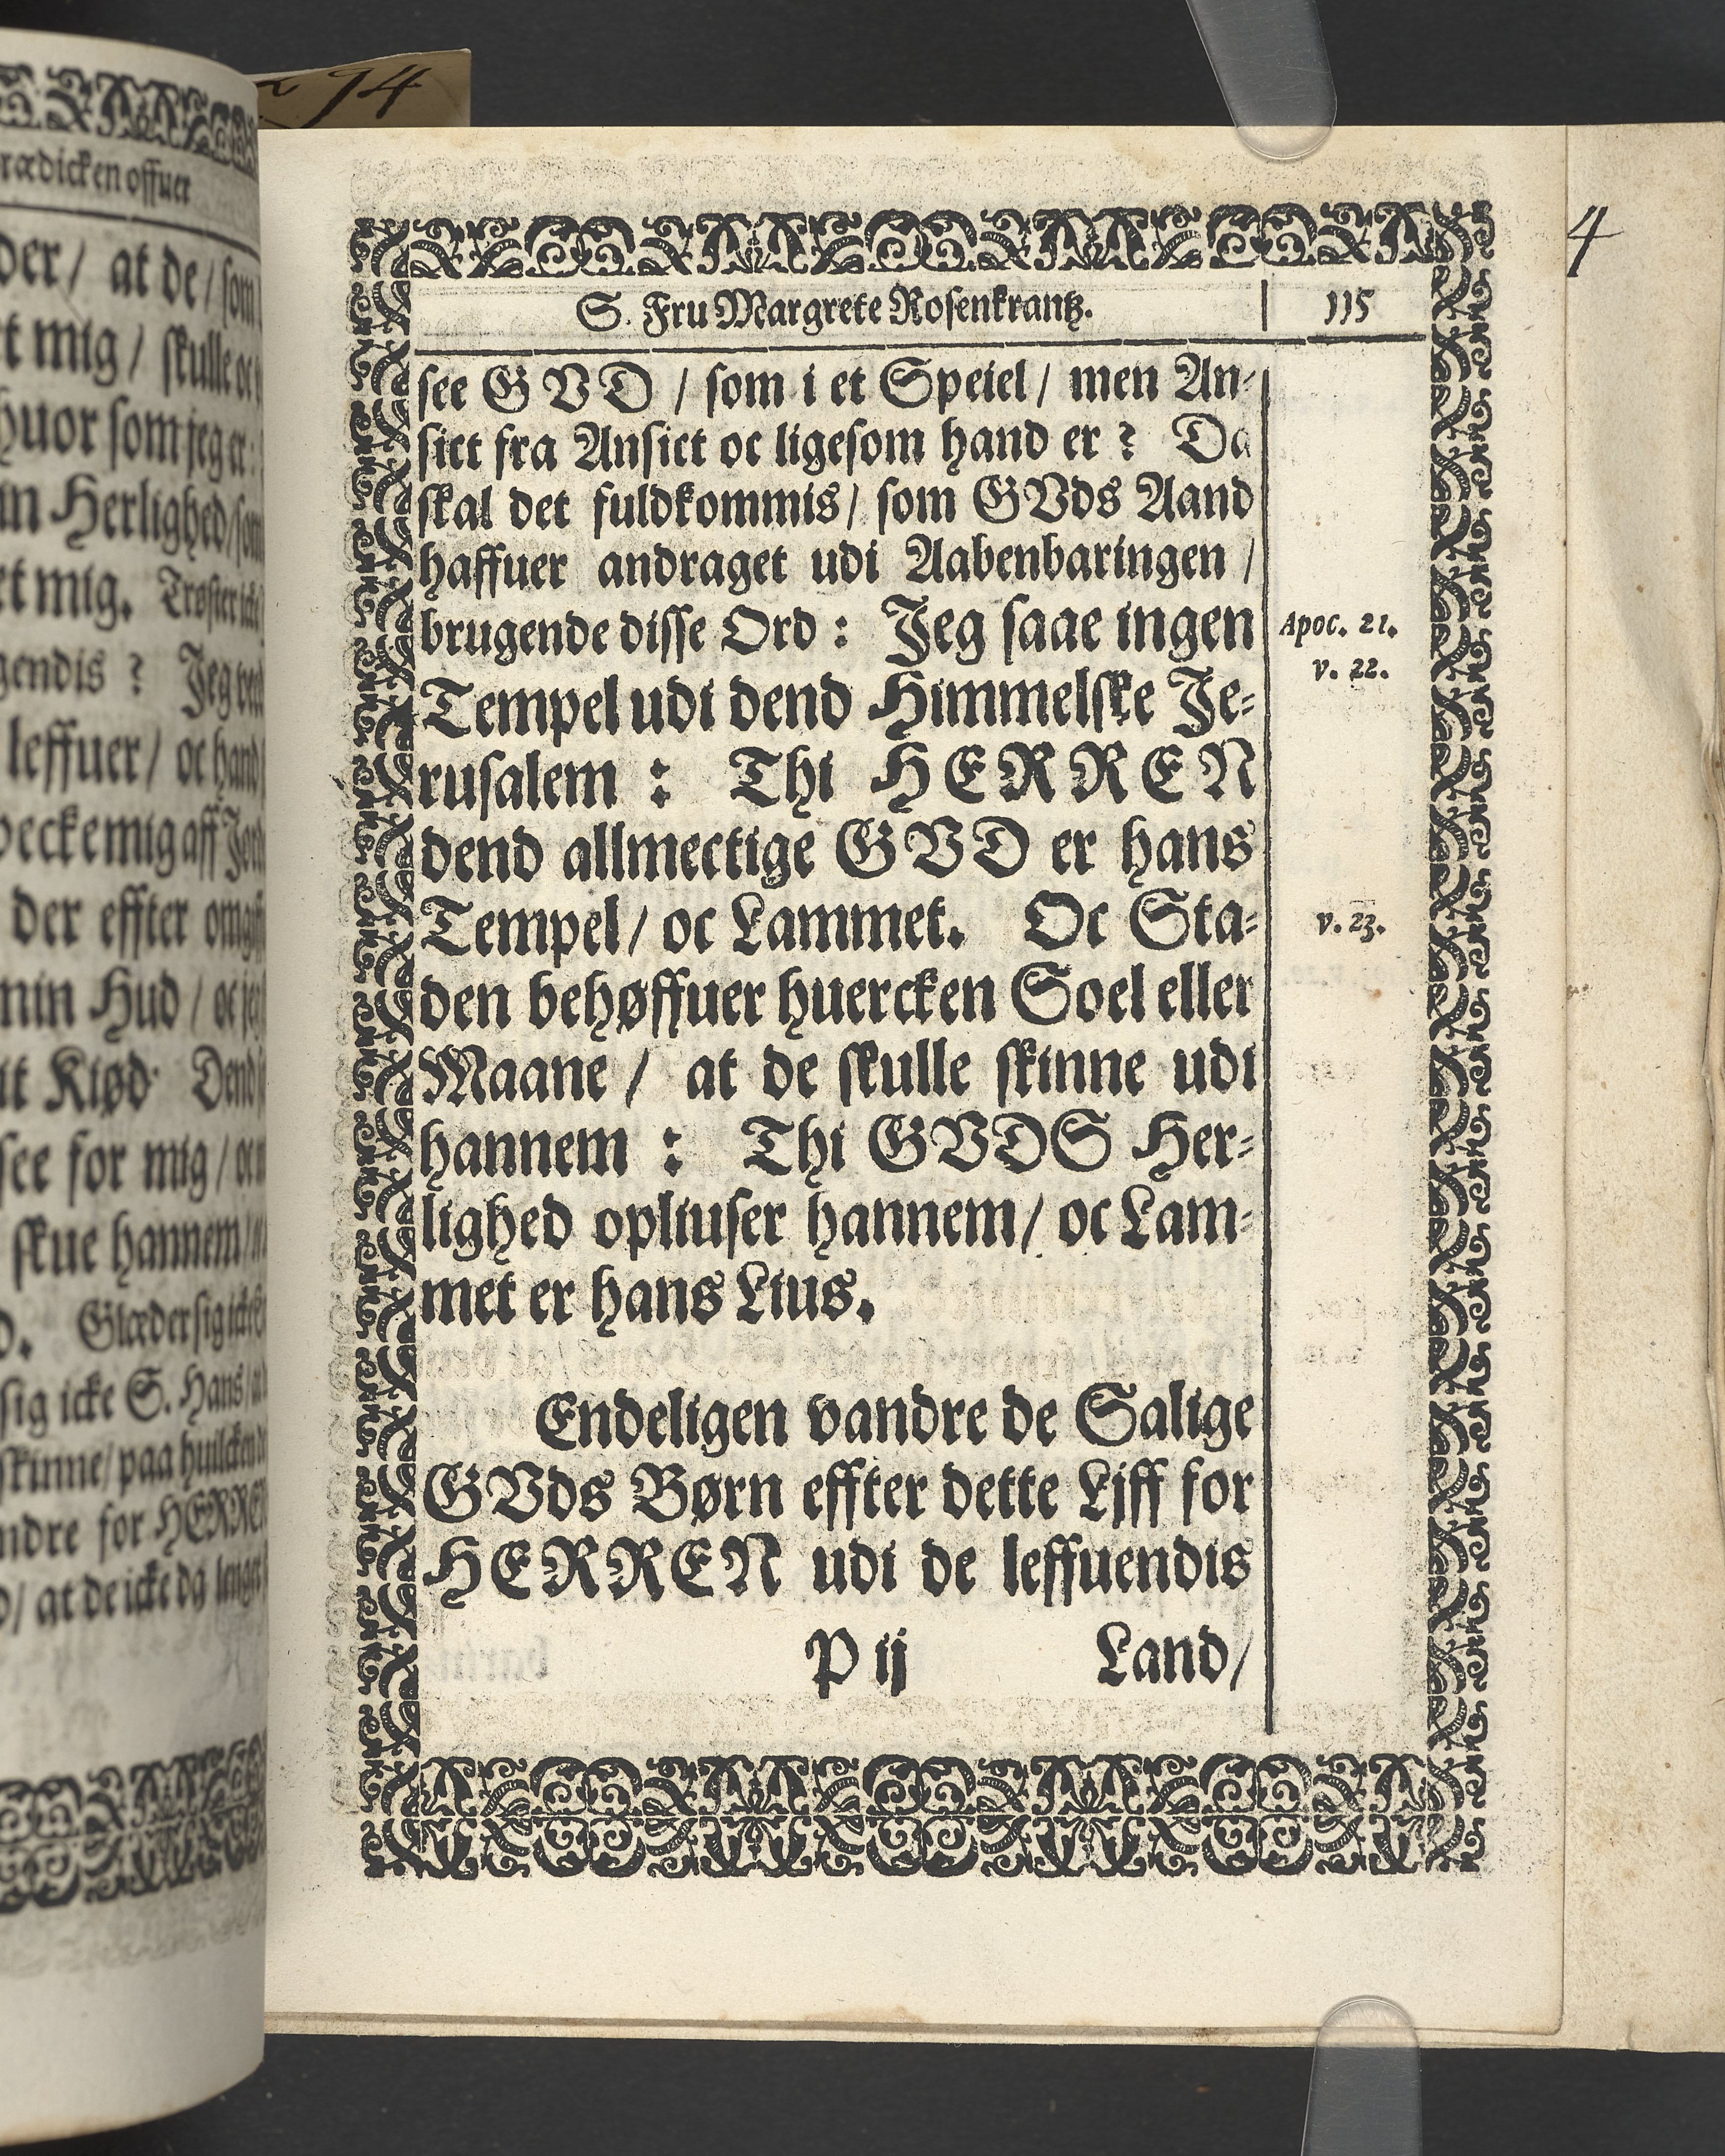 94
rædicken offuer
der/ at de/ som
t mig/ skulle oc
huor som jeg er:
n Herlighed/ som
et mig. Trøster icke
gendis ? Jeg veed
leffuer/ oc hand
veckemig aff Jord
der effter omgiff
min Hud / oc jeg
it Kiød Dend
see for mig / oc
skue hannem/
d. Glæder sig icke
sig icke S. Hans/ at
skinne/ paa huilcken
ndre for HERREN
d/ at de icke da lenger
S. Fru Margrete Rosenkrantz. 115
see GVD / som i et Speiel / men An-
sict fra Ansict oc ligesom hand er ? Da
skal det fuldkommis/ som GVds Aand
haffuer andraget udi Aabenbaringen /
brugende disse Ord : Jeg saae ingen
Apoc. 21.
v. 22.
Tempel udi dend Himmelske Je-
rusalem : Thi HERREN
dend allmectige GVD er hans
Tempel/ oc Lammet. Oc Sta-
v. 23.
den behøffuer huercken Soel eller
Maane / at de skulle skinne udi
hannem : Thi GVDS Her-
lighed opliuser hannem/ oc Lam-
met er hans Lius.
Endeligen vandre de Salige
GVds Børn effter dette Ljff for
HERREN udi de leffuendis
P ij Land/
4